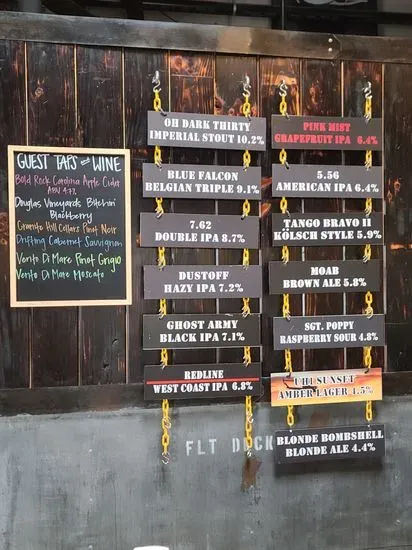 GUEST TAPS & WINE
Bold Rock Carolina Apple Cider
ABV 4.7%
Douglas Vineyards
Blackberry
Granite Hill Cellars Pinot Noir
Drifting Cabernet Sauvignon
Vento Di Mare Pinot Grigio
Vento Di Mare Moscato
OH DARK THIRTY
IMPERIAL STOUT 10.2%
BLUE FALCON
BELGIAN TRIPLE 9.1%
7.62
DOUBLE IPA 8.7%
DUSTOFF
HAZY IPA 7.2%
GHOST ARMY
BLACK IPA 7.1%
REDLINE
WEST COAST IPA 6.8%
PINK MIST
GRAPEFRUIT IPA 6.4%
5.56
AMERICAN IPA 6.4%
TANGO BRAVO II
KÖLSCH STYLE 5.9%
MOAB
BROWN ALE 5.8%
SGT. POPPY
RASPBERRY SOUR 4.8%
UHI SUNSET
AMBER LAGER 4.5%
BLONDE BOMBSHELL
BLONDE ALE 4.4%
FLT DECK